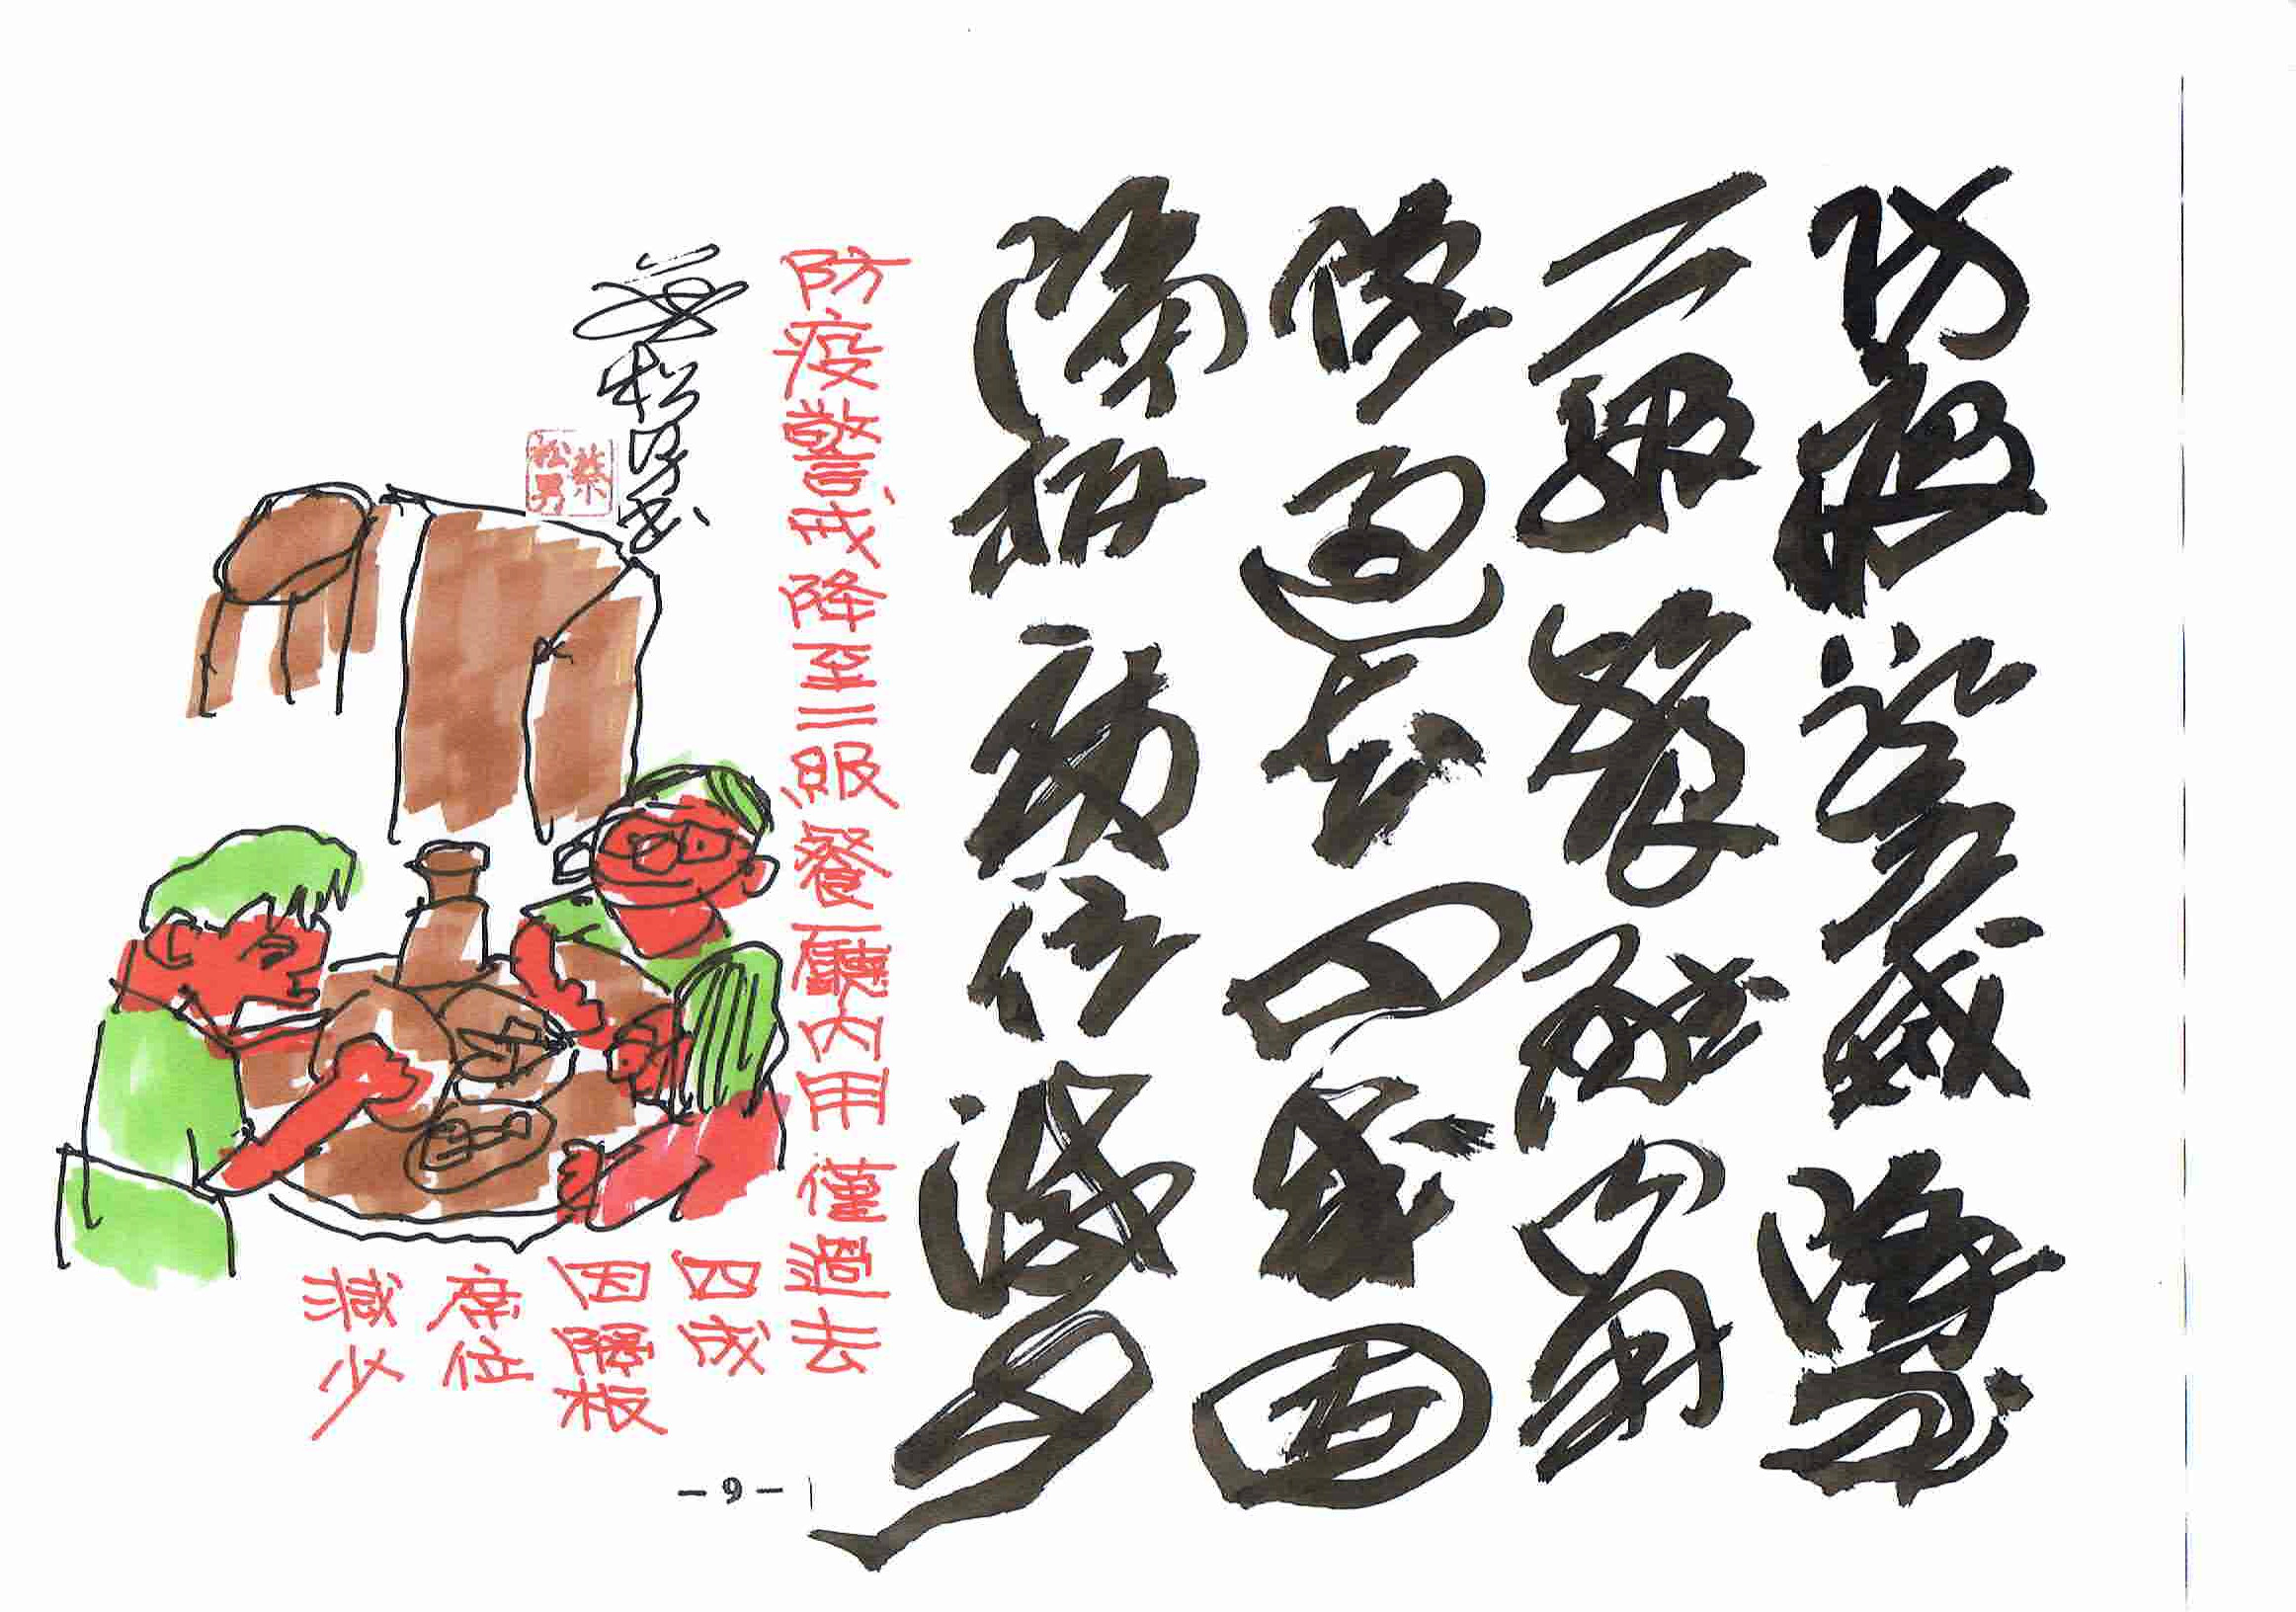 防疫警戒降至
二級餐廳內用
僅過去四成因
隔板席位減少
防疫警戒降至二級餐廳內用僅過去
四成
因隔板
席位
減少
蔡松男書
蔡
松男
－9－